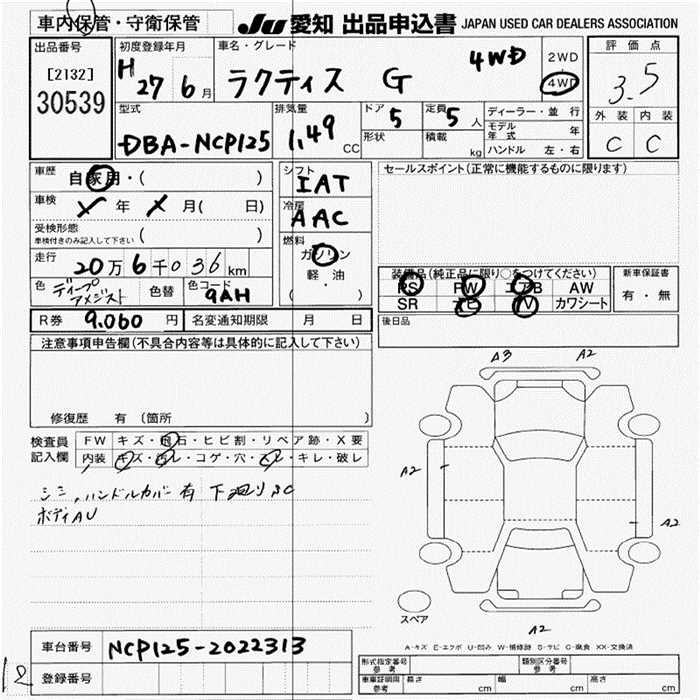 車内保管・守衛保管
JU 愛知 出品申込書 JAPAN USED CAR DEALERS ASSOCIATION
出品番号
[2132]
30539
初度登録年月
H 27 6月
車名・グレード
ラクティス G 4WD
2WD
4WD
評価点
3.5
外装 内装
C C
型式
DBA-NCP125
排気量
1,49 CC
ドア
5
形状
定員
5 人
積載
kg
ディーラー・並行
モデル年式 年
ハンドル 左・右
車歴
自家用・( )
車検
年 月( 日)
受検形態
車検付きのみ記入して下さい ( )
走行
20万6千036km
色
ディープアメジスト
色替
色コード
9AH
シフト
IAT
冷房
AAC
燃料
ガソリン
軽・油
( )
R券 9.060 円 名変通知期限 月 日
セールスポイント(正常に機能するものに限ります)
装備品(純正品に限り○をつけてください)
PS PW エアB AW
SR ナビ TV カワシート
新車保証書
有・無
後日品
注意事項申告欄(不具合内容等は具体的に記入して下さい)
修復歴 有 (箇所
検査員記入欄
FW キズ・飛石・ヒビ割・リペア跡・X要
内装 キズ・汚レ・コゲ・穴・スレ・キレ・破レ
シミ,ハンドルカバー有 下廻りSC
ボディAU
A3 A2
A2
A2
A2
スペア
A-キズ E-エクボ U-凹み W-補修跡 S-サビ C-腐食 XX-交換済
車台番号 NCP125-2022313
登録番号
12
形式指定番号
参考
類別区分番号
参考
車車証明用
参考
長さ cm 幅 cm 高さ cm